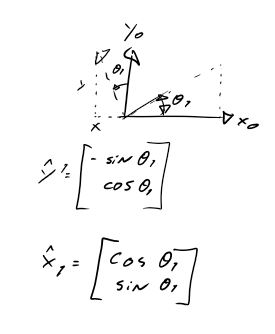 y₀
θ₁
y
θ₁
x
x₀
ŷ₁ = [ - sin θ₁
cos θ₁ ]
x̂₁ = [ cos θ₁
sin θ₁ ]